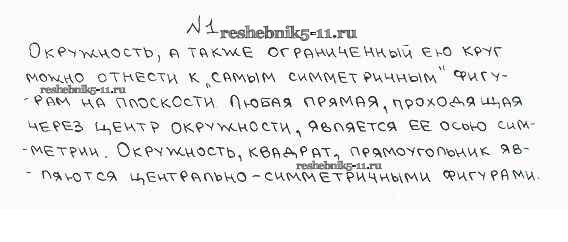 №1
reshebnik5-11.ru
Окружность, а также ограниченный ею круг
можно отнести к „самым симметричным" фигу-
reshebnik5-11.ru
-рам на плоскости. Любая прямая, проходящая
через центр окружности, является ее осью сим-
-метрии. Окружность, квадрат, прямоугольник яв-
reshebnik5-11.ru
-ляются центрально-симметричными фигурами.